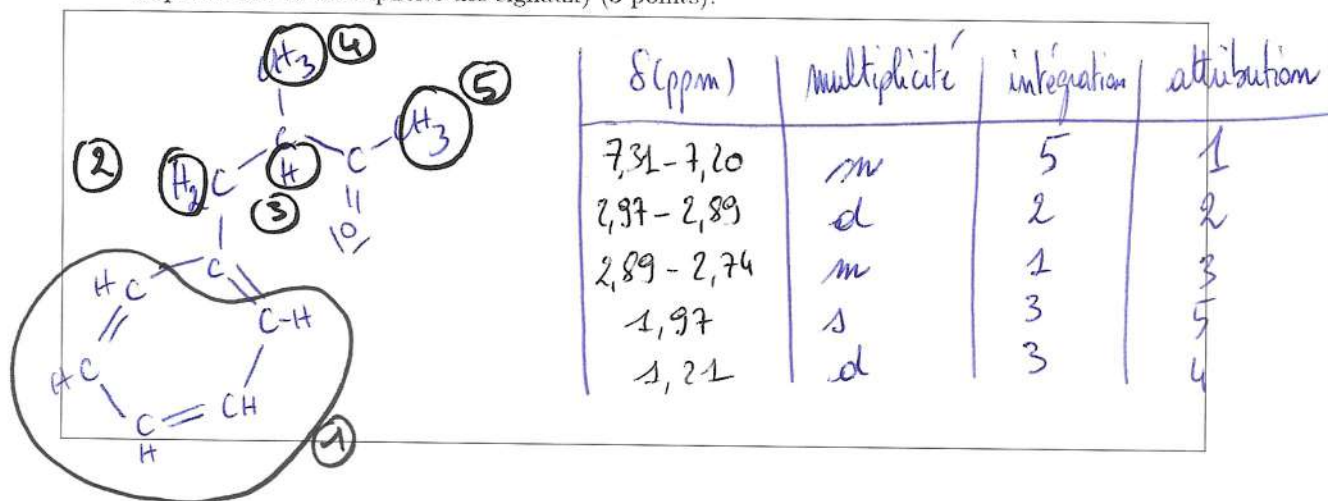 multiplicité des signaux) (3 points).
CH3 4
CH3 5
2 H2C C C
H
3
|O|
C
H C
C-H
H C
C CH
H
1
δ(ppm) multiplicité intégration attribution
7,31-7,20 m 5 1
2,97-2,89 d 2 2
2,89-2,74 m 1 3
1,97 s 3 5
1,21 d 3 4